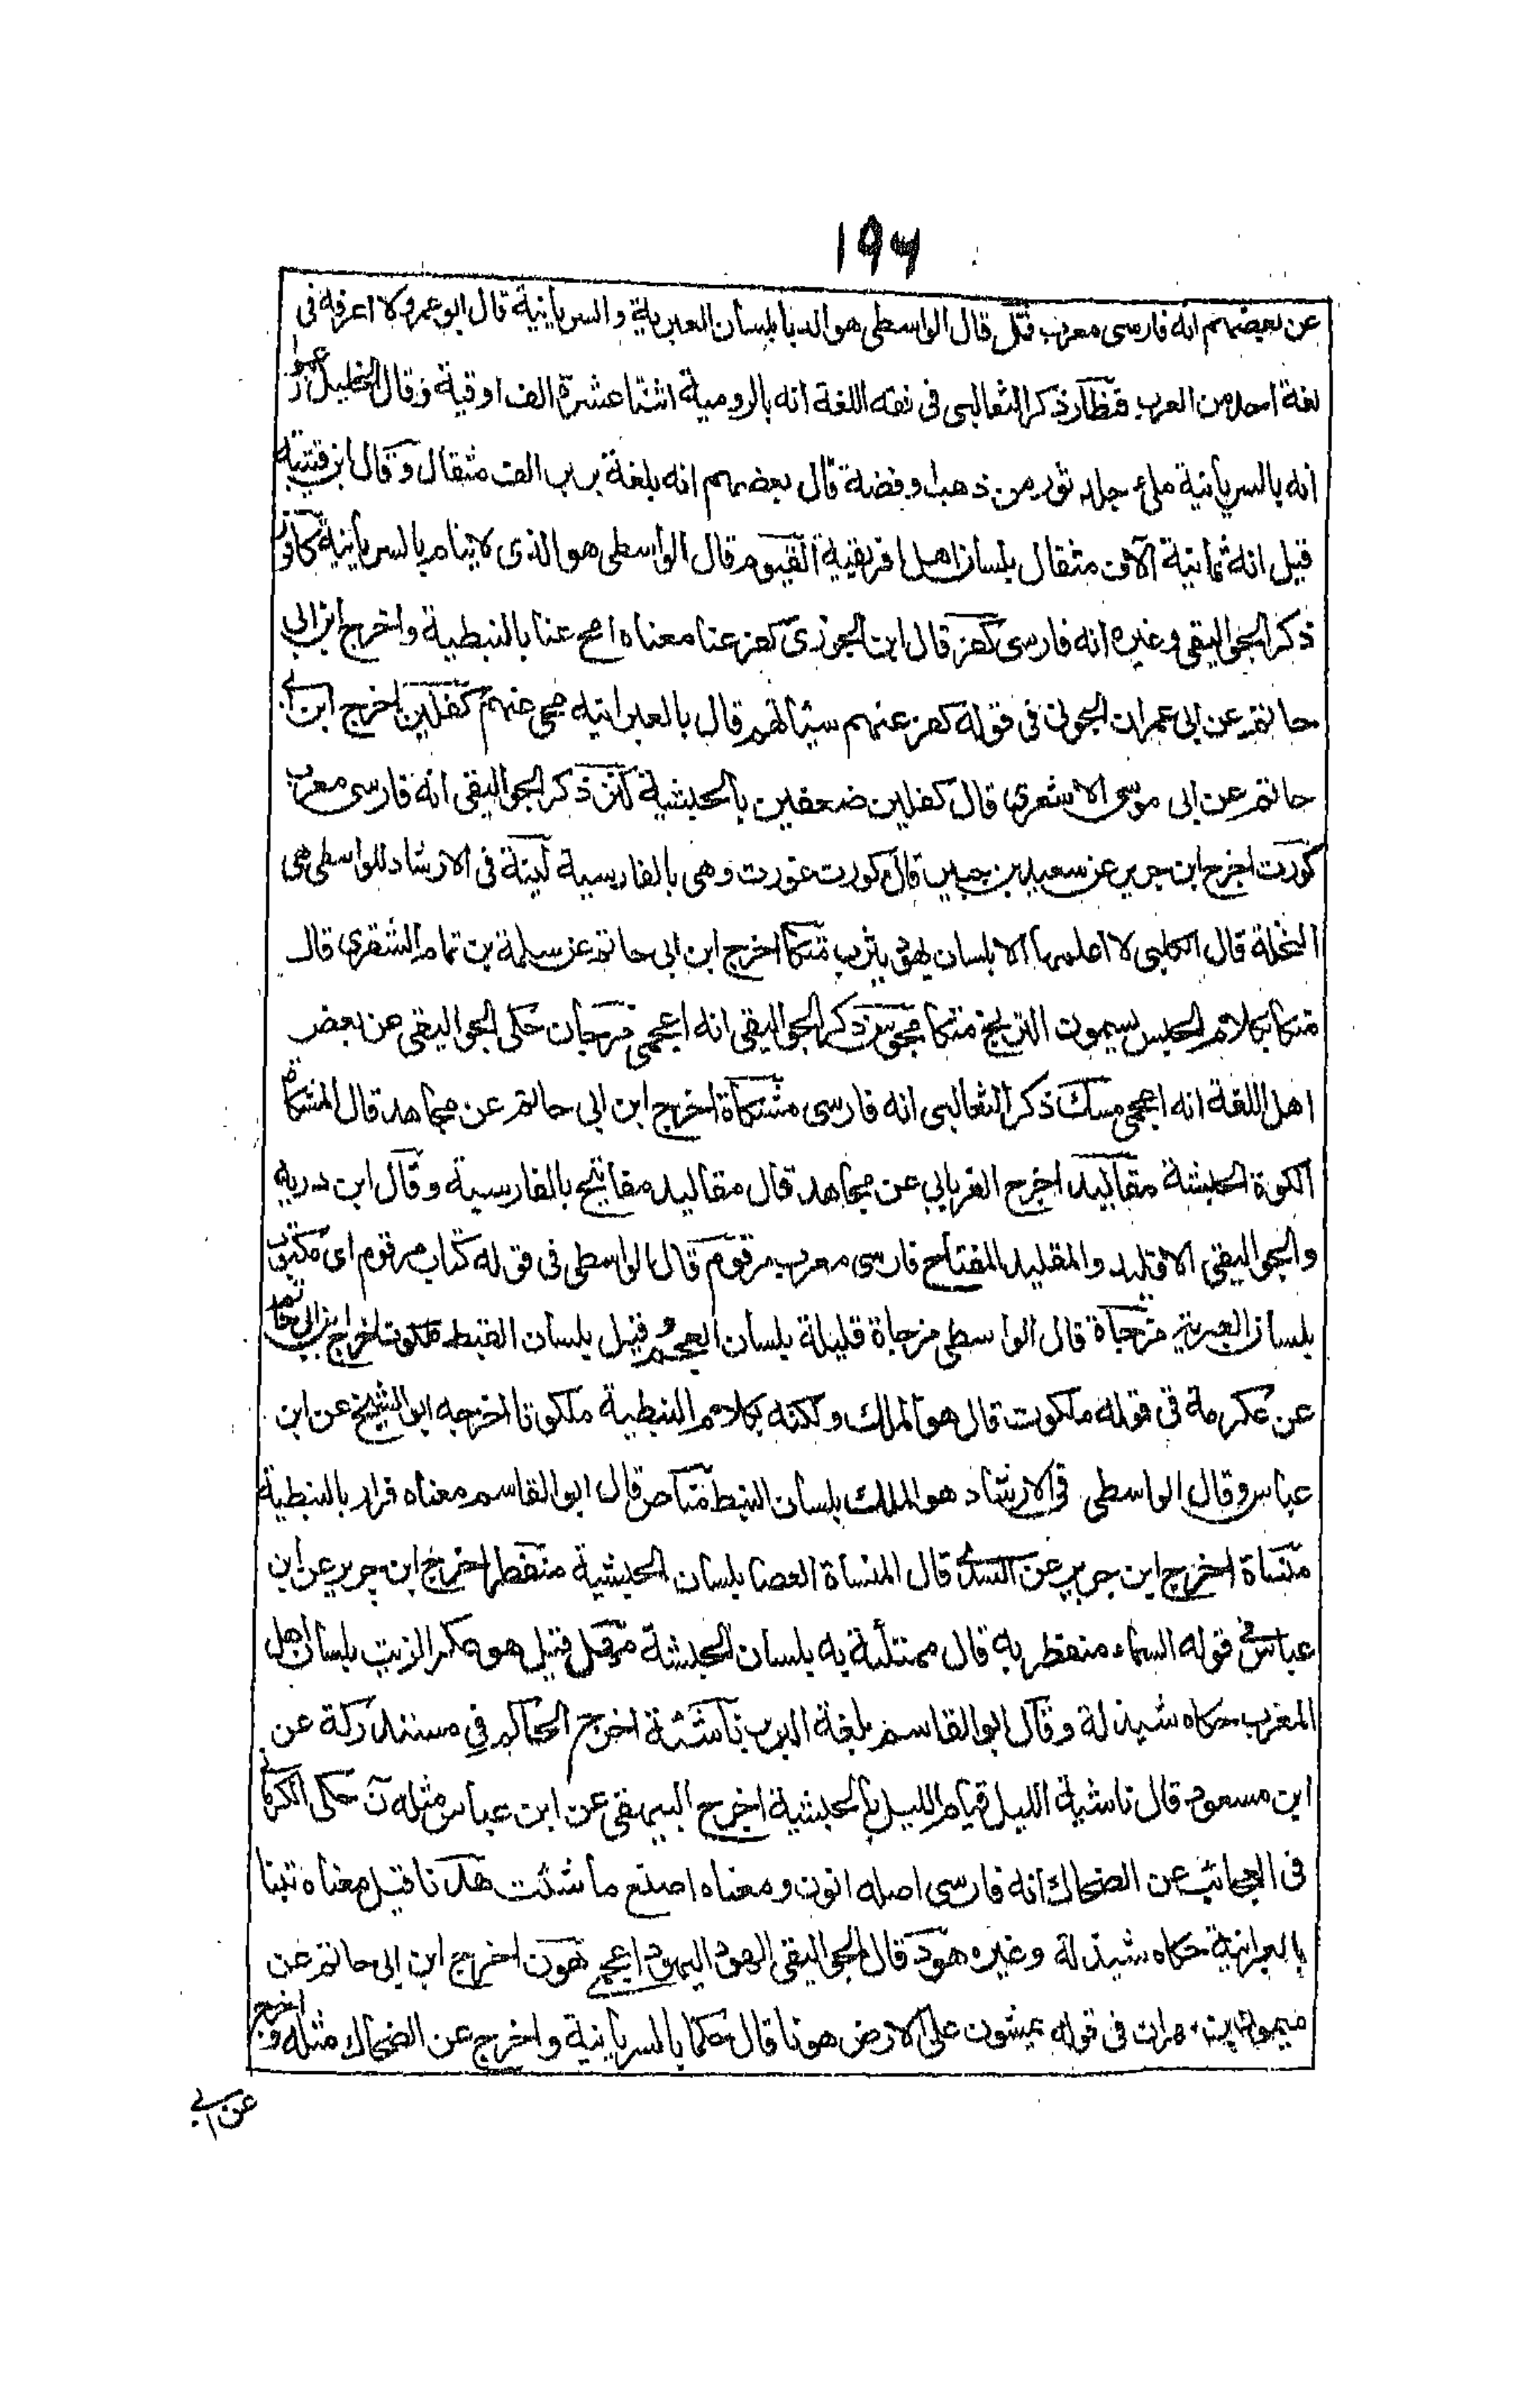 ١٩٦
عن بعضهم انه فارسى معرب قمل قال الواسطى هو الدبا بلسان العبرية و السريانية قال ابو عمرو لا اعرفه فى
لغة احد من العرب قنطار ذكر الثعالبى فى فقه اللغة انه بالرومية اثنتا عشرة الف اوقية و قال الخليل زعموا
انه بالسريانية ملئ جلد ثور من ذهبا و فضة قال بعضهم انه بلغة بربر الف مثقال و قال ابن قتيبة
قيل انه ثمانية آلاف مثقال بلسان اهل افريقية القيوم قال الواسطى هو الذى لا ينام بالسريانية كافور
ذكر الجواليقى و غيره انه فارسى كفر قال ابن الجوزى كفر عنا معناه امح عنا بالنبطية و اخرج ابن ابى
حاتم عن ابى عمران الجونى فى قوله كفر عنهم سيئاتهم قال بالعبرانيه محى عنهم كفلين اخرج ابن ابى
حاتم عن ابى موسى الاشعرى قال كفلين ضعفين بالحبشية كنز ذكر الجواليقى انه فارسى معرب
كورت اخرج ابن جرير عن سعيد بن جبير قال كورت غورت و هى بالفارسية لينة فى الارشاد للواسطى هى
النخلة قال الكلبى لا اعلمها الا بلسان يهود يثرب متكأ اخرج ابن ابى حاتم عن سلمة بن تمام الشقرى قال
متكا بكلام الحبس يسمون الترنج متكا مجوس ذكر الجواليقى انه اعجمى مرجان حكى الجواليقى عن بعض
اهل اللغة انه اعجمى مسك ذكر الثعالبى انه فارسى مشكاة اخرج ابن ابى حاتم عن مجاهد قال المشكاة
الكوة الحبشة مقاليد اخرج الفريابى عن مجاهد قال مقاليد مفاتيح بالفارسية و قال ابن دريد
و الجواليقى الاقليد و المقليد المفتاح فارسى معرب مرقوم قال الواسطى فى قوله كتاب مرقوم اى مكتوب
بلسان العبرية مزجاة قال الواسطى مزجاة قليلة بلسان العجم و قيل بلسان القبط ملكوت اخرج ابن ابى حاتم
عن عكرمة فى قوله ملكوت قال هو الملك و لكنه بكلام النبطية ملكوتا اخرجه ابو الشيخ عن ابن
عباس و قال الواسطى فى الارشاد هو الملك بلسان النبط مناص قال ابو القاسم معناه فرار بالنبطية
منساة اخرج ابن جرير عن السدى قال المنساة العصا بلسان الحبشية منفطر اخرج ابن جرير عن ابن
عباس فى قوله السماء منفطر به قال ممتلئة به بلسان الحبشة مهل قيل هو عكر الزيت بلسان اهل
المغرب حكاه شيذلة و قال ابو القاسم بلغة البربر ناشئة اخرج الحاكم فى مستدركه عن
ابن مسعود قال ناشية الليل قيام الليل بالحبشية اخرج البيهقى عن ابن عباس مثله ن حكى الكرمانى
فى العجائب عن الضحاك انه فارسى اصله انون و معناه اصنع ما شئت هدنا قيل معناه تبنا
بالعبرانية حكاه شيذلة و غيره هود قال الجواليقى الهود اليهود اعجمى هون اخرج ابن ابى حاتم عن
ميمون بن مهران فى قوله يمشون على الارض هونا قال حكما بالسريانية و اخرج عن الضحاك مثله و اخرج
عن ابى